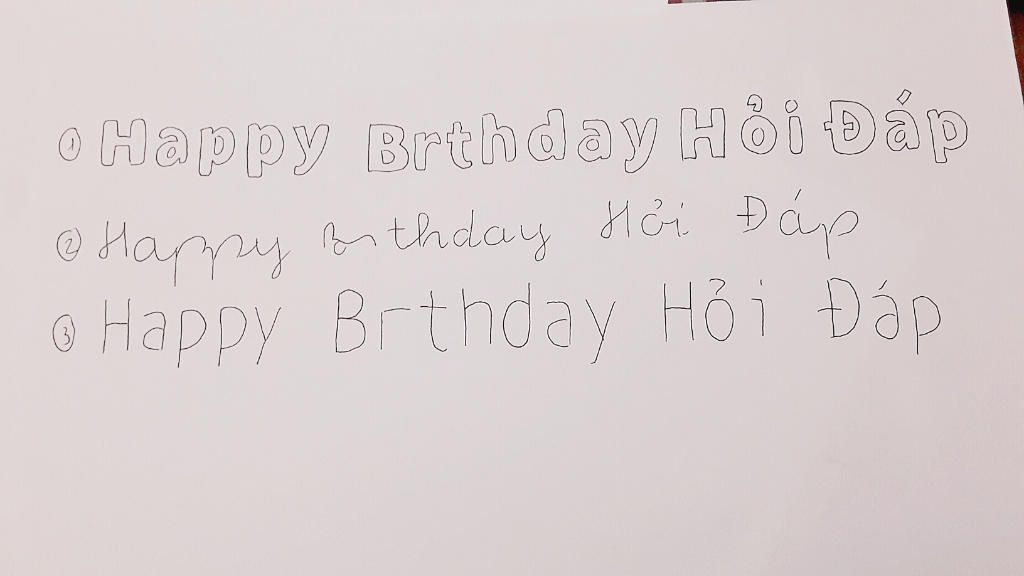 ① Happy Brthday Hỏi Đáp
② Happy Brthday Hỏi Đáp
③ Happy Brthday Hỏi Đáp